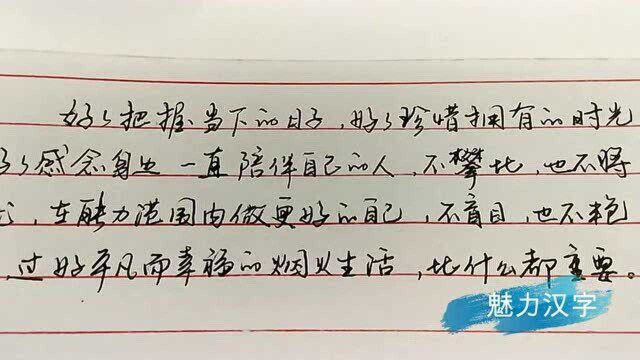 好好把握当下的日子,好好珍惜拥有的时光
好好感念身边一直陪伴自己的人,不攀比,也不将
,在能力范围内做更好的自己,不盲目,也不抱
,过好平凡而幸福的烟火生活,比什么都重要。
魅力汉字